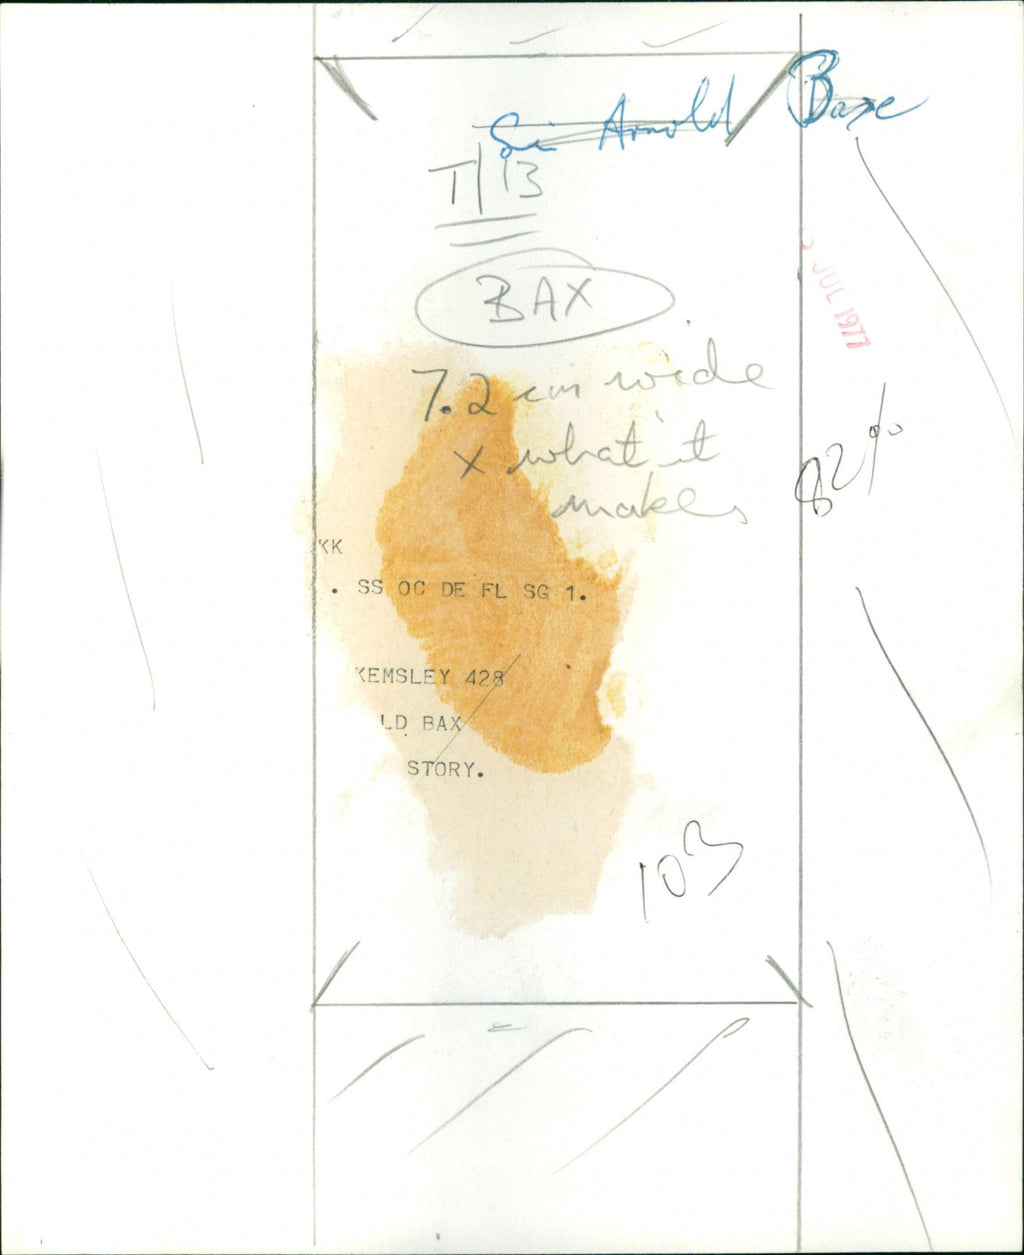 Sir Arnold Baxe
T/13
BAX
JUL 1977
7.2 cm wide
x what it
makes
82%
KK
. SS OC DE FL SG 1.
KEMSLEY 428
LD BAX
STORY.
103